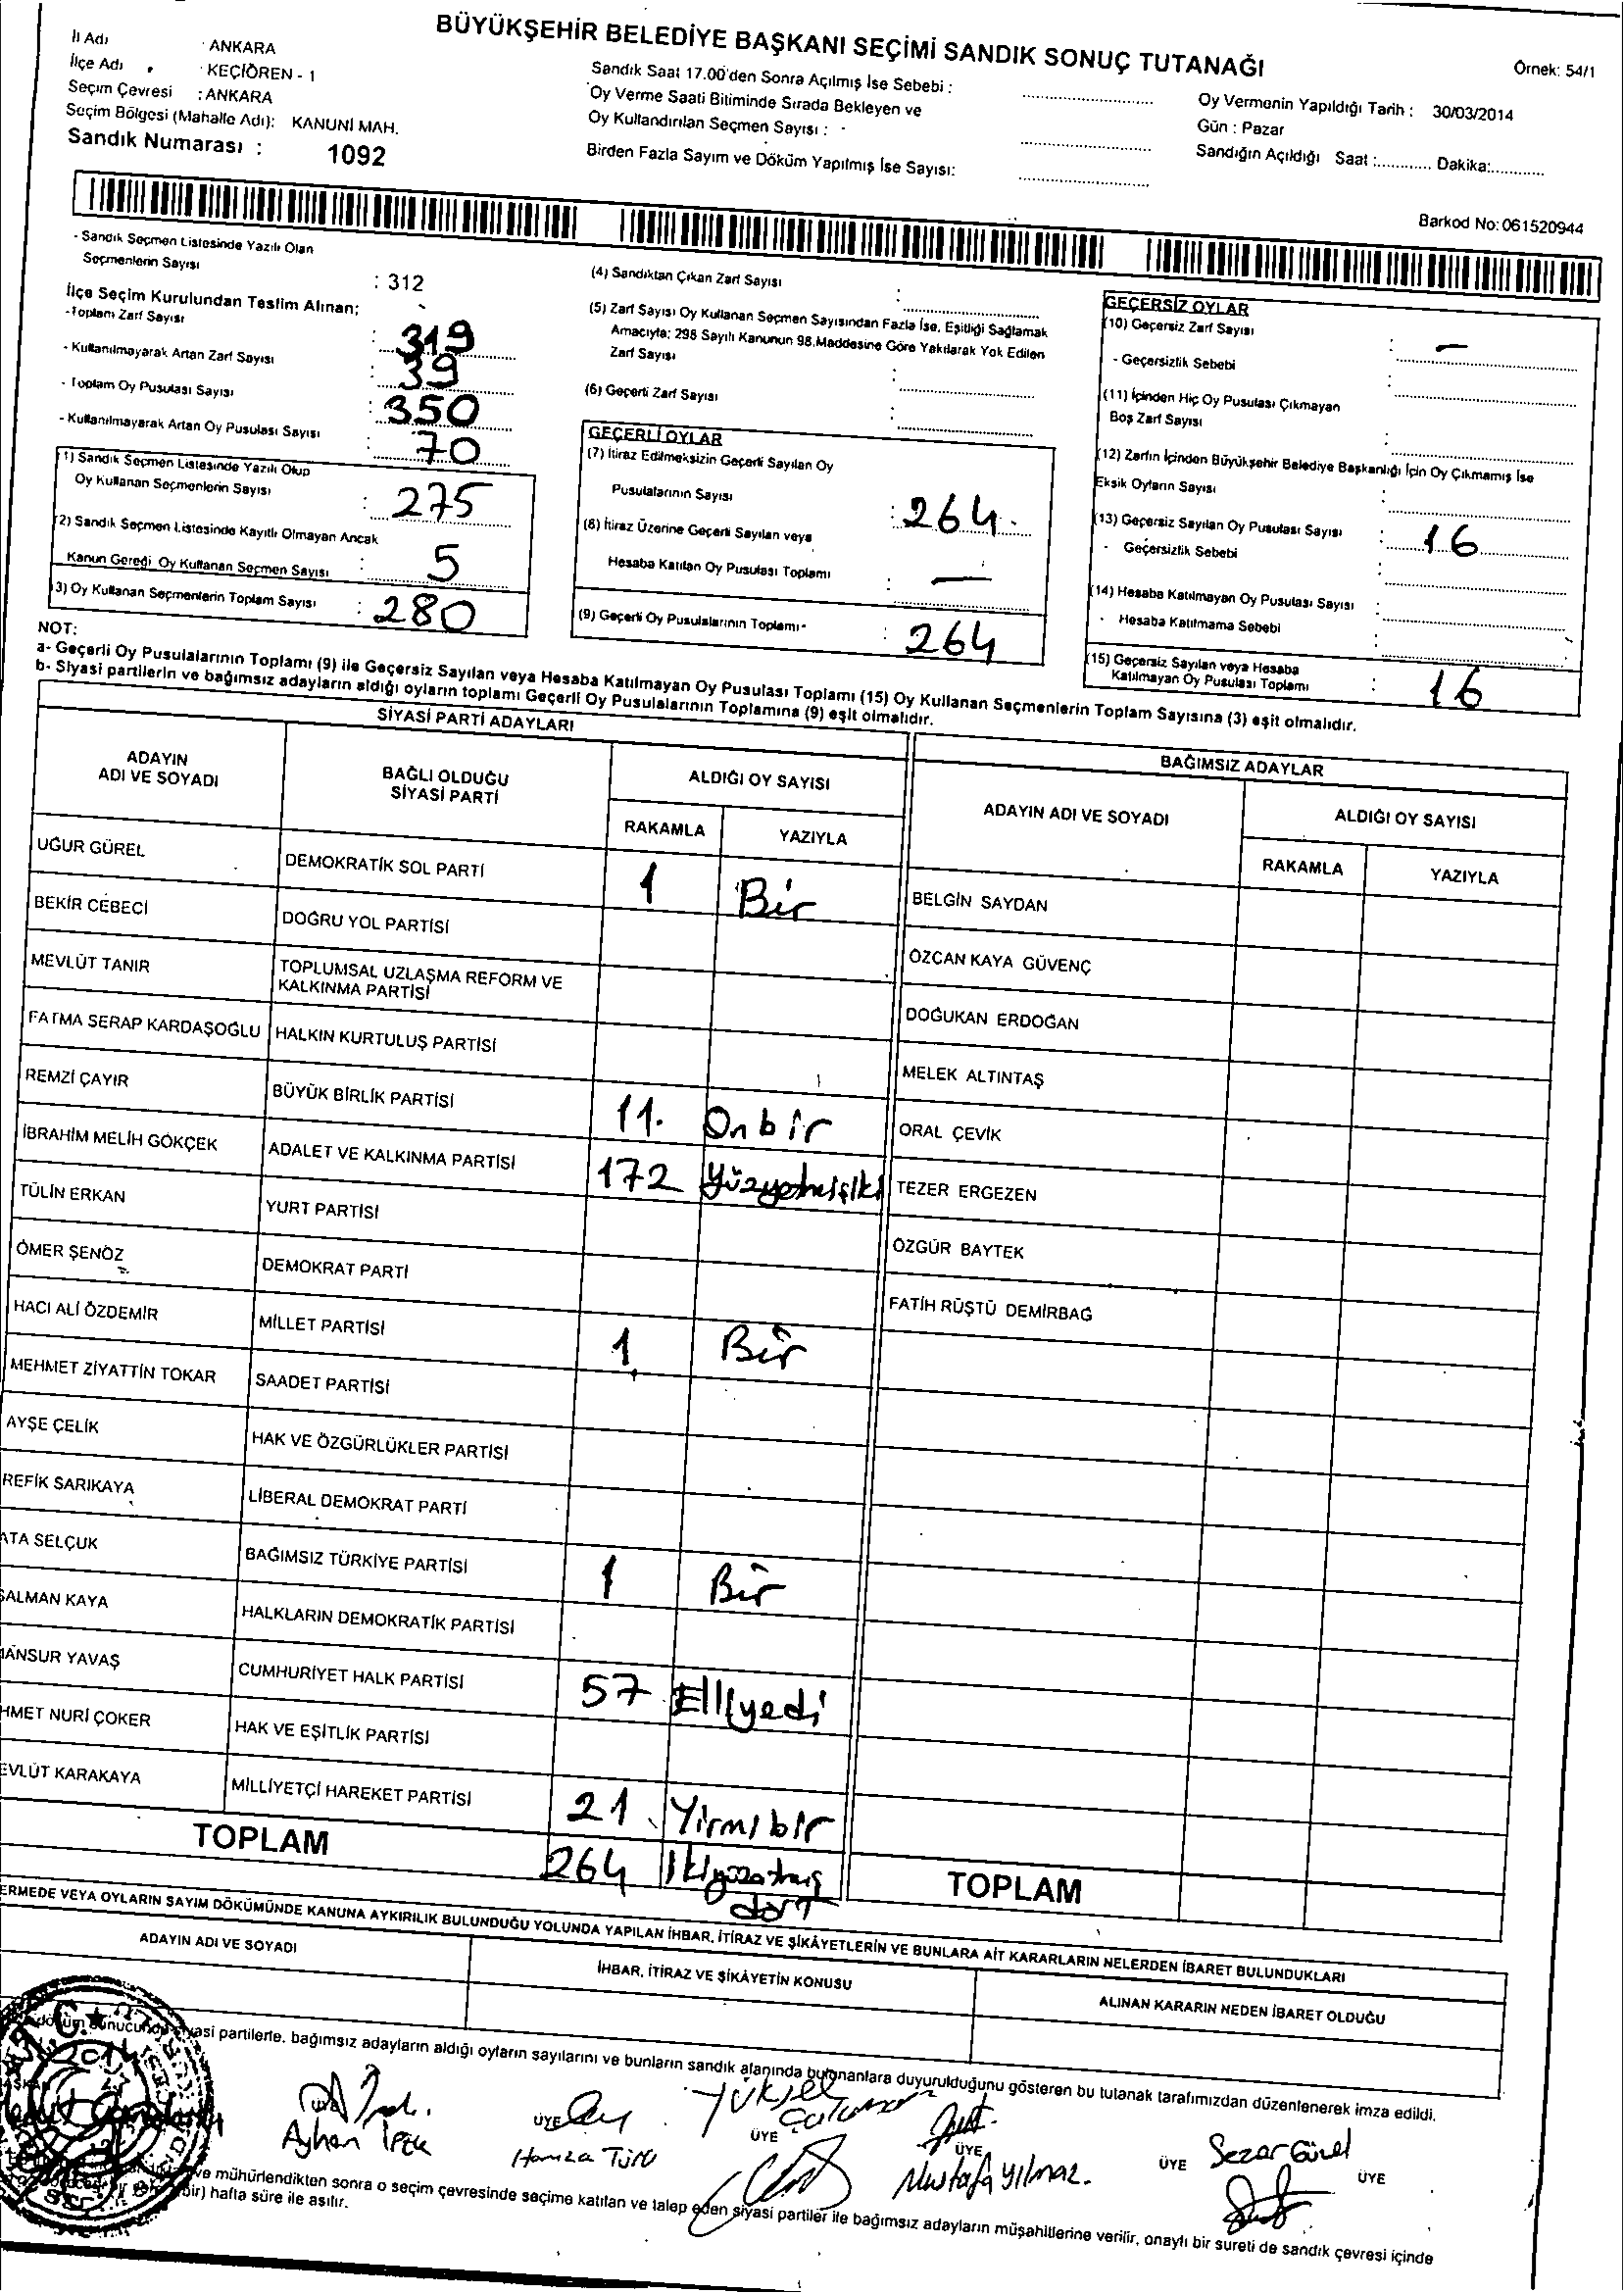 BÜYÜKŞEHİR BELEDİYE BAŞKANI SEÇİMİ SANDIK SONUÇ TUTANAĞI
Örnek: 54/1
İl Adı : ANKARA
İlçe Adı : KEÇİÖREN - 1
Seçim Çevresi : ANKARA
Seçim Bölgesi (Mahalle Adı): KANUNİ MAH.
Sandık Numarası : 1092
Sandık Saat 17.00'den Sonra Açılmış İse Sebebi :
Oy Verme Saati Bitiminde Sırada Bekleyen ve
Oy Kullandırılan Seçmen Sayısı :
Birden Fazla Sayım ve Döküm Yapılmış İse Sayısı:
Oy Vermenin Yapıldığı Tarih : 30/03/2014
Gün : Pazar
Sandığın Açıldığı Saat :............ Dakika:............
Barkod No: 061520944
- Sandık Seçmen Listesinde Yazılı Olan
Seçmenlerin Sayısı : 312
İlçe Seçim Kurulundan Teslim Alınan:
-Toplam Zarf Sayısı : 319
- Kullanılmayarak Artan Zarf Sayısı : 39
- Toplam Oy Pusulası Sayısı : 350
- Kullanılmayarak Artan Oy Pusulası Sayısı : 70
(1) Sandık Seçmen Listesinde Yazılı Olup
Oy Kullanan Seçmenlerin Sayısı : 275
(2) Sandık Seçmen Listesinde Kayıtlı Olmayan Ancak
Kanun Gereği Oy Kullanan Seçmen Sayısı : 5
(3) Oy Kullanan Seçmenlerin Toplam Sayısı : 280
(4) Sandıktan Çıkan Zarf Sayısı :
(5) Zarf Sayısı Oy Kullanan Seçmen Sayısından Fazla İse, Eşitliği Sağlamak
Amacıyla; 298 Sayılı Kanunun 98.Maddesine Göre Yakılarak Yok Edilen
Zarf Sayısı :
(6) Geçerli Zarf Sayısı :
GEÇERLİ OYLAR
(7) İtiraz Edilmeksizin Geçerli Sayılan Oy
Pusulalarının Sayısı : 264
(8) İtiraz Üzerine Geçerli Sayılan veya
Hesaba Katılan Oy Pusulası Toplamı : —
(9) Geçerli Oy Pusulalarının Toplamı : 264
GEÇERSİZ OYLAR
(10) Geçersiz Zarf Sayısı : —
- Geçersizlik Sebebi :
(11) İçinden Hiç Oy Pusulası Çıkmayan
Boş Zarf Sayısı :
(12) Zarfın İçinden Büyükşehir Belediye Başkanlığı İçin Oy Çıkmamış İse
Eksik Oyların Sayısı :
(13) Geçersiz Sayılan Oy Pusulası Sayısı : 16
- Geçersizlik Sebebi :
(14) Hesaba Katılmayan Oy Pusulası Sayısı :
- Hesaba Katılmama Sebebi :
(15) Geçersiz Sayılan veya Hesaba
Katılmayan Oy Pusulası Toplamı : 16
NOT:
a- Geçerli Oy Pusulalarının Toplamı (9) ile Geçersiz Sayılan veya Hesaba Katılmayan Oy Pusulası Toplamı (15) Oy Kullanan Seçmenlerin Toplam Sayısına (3) eşit olmalıdır.
b- Siyasi partilerin ve bağımsız adayların aldığı oyların toplamı Geçerli Oy Pusulalarının Toplamına (9) eşit olmalıdır.
SİYASİ PARTİ ADAYLARI
ADAYIN ADI VE SOYADI
BAĞLI OLDUĞU SİYASİ PARTİ
ALDIĞI OY SAYISI
RAKAMLA YAZIYLA
UĞUR GÜREL DEMOKRATİK SOL PARTİ 1 Bir
BEKİR CEBECİ DOĞRU YOL PARTİSİ
MEVLÜT TANIR TOPLUMSAL UZLAŞMA REFORM VE KALKINMA PARTİSİ
FATMA SERAP KARDAŞOĞLU HALKIN KURTULUŞ PARTİSİ
REMZİ ÇAYIR BÜYÜK BİRLİK PARTİSİ 11. Onbir
İBRAHİM MELİH GÖKÇEK ADALET VE KALKINMA PARTİSİ 172 Yüzyetmişiki
TÜLİN ERKAN YURT PARTİSİ
ÖMER ŞENÖZ DEMOKRAT PARTİ
HACI ALİ ÖZDEMİR MİLLET PARTİSİ 1 Bir
MEHMET ZİYATTİN TOKAR SAADET PARTİSİ
AYŞE ÇELİK HAK VE ÖZGÜRLÜKLER PARTİSİ
REFİK SARIKAYA LİBERAL DEMOKRAT PARTİ
ATA SELÇUK BAĞIMSIZ TÜRKİYE PARTİSİ 1 Bir
SALMAN KAYA HALKLARIN DEMOKRATİK PARTİSİ
MANSUR YAVAŞ CUMHURİYET HALK PARTİSİ 57 Elliyedi
HMET NURİ ÇOKER HAK VE EŞİTLİK PARTİSİ
EVLÜT KARAKAYA MİLLİYETÇİ HAREKET PARTİSİ 21 Yirmibir
TOPLAM 264 İkiyüzatmış dört
BAĞIMSIZ ADAYLAR
ADAYIN ADI VE SOYADI
ALDIĞI OY SAYISI
RAKAMLA YAZIYLA
BELGİN SAYDAN
ÖZCAN KAYA GÜVENÇ
DOĞUKAN ERDOĞAN
MELEK ALTINTAŞ
ORAL ÇEVİK
TEZER ERGEZEN
ÖZGÜR BAYTEK
FATİH RÜŞTÜ DEMİRBAĞ
TOPLAM
ERMEDE VEYA OYLARIN SAYIM DÖKÜMÜNDE KANUNA AYKIRILIK BULUNDUĞU YOLUNDA YAPILAN İHBAR, İTİRAZ VE ŞİKÂYETLERİN VE BUNLARA AİT KARARLARIN NELERDEN İBARET BULUNDUKLARI
ADAYIN ADI VE SOYADI
İHBAR, İTİRAZ VE ŞİKÂYETİN KONUSU
ALINAN KARARIN NEDEN İBARET OLDUĞU
siyasi partilerle, bağımsız adayların aldığı oyların sayılarını ve bunların sandık alanında bulunanlara duyurulduğunu gösteren bu tutanak tarafımızdan düzenlenerek imza edildi.
Ayhan İPEK
ÜYE Hamza Türü
ÜYE Yüksel
ÜYE Mustafa Yılmaz.
ÜYE Sezar Gürel
ÜYE
ve mühürlendikten sonra o seçim çevresinde seçime katılan ve talep eden siyasi partiler ile bağımsız adayların müşahitlerine verilir, onaylı bir sureti de sandık çevresi içinde
bir) hafta süre ile asılır.